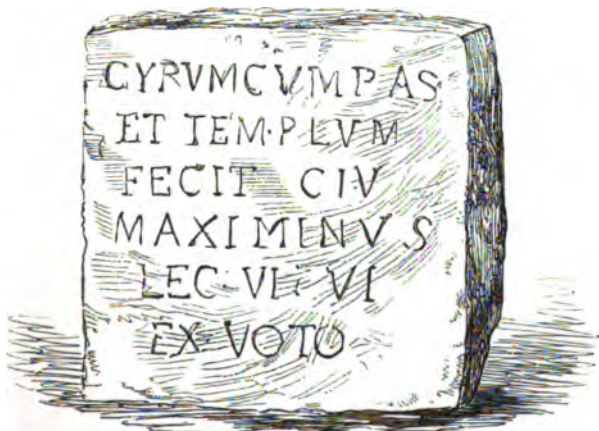 CYRVMCVMPAS
ET TEM·PLVM
FECIT CIV
MAXIMINVS
LEG·VI· VI
EX·VOTO